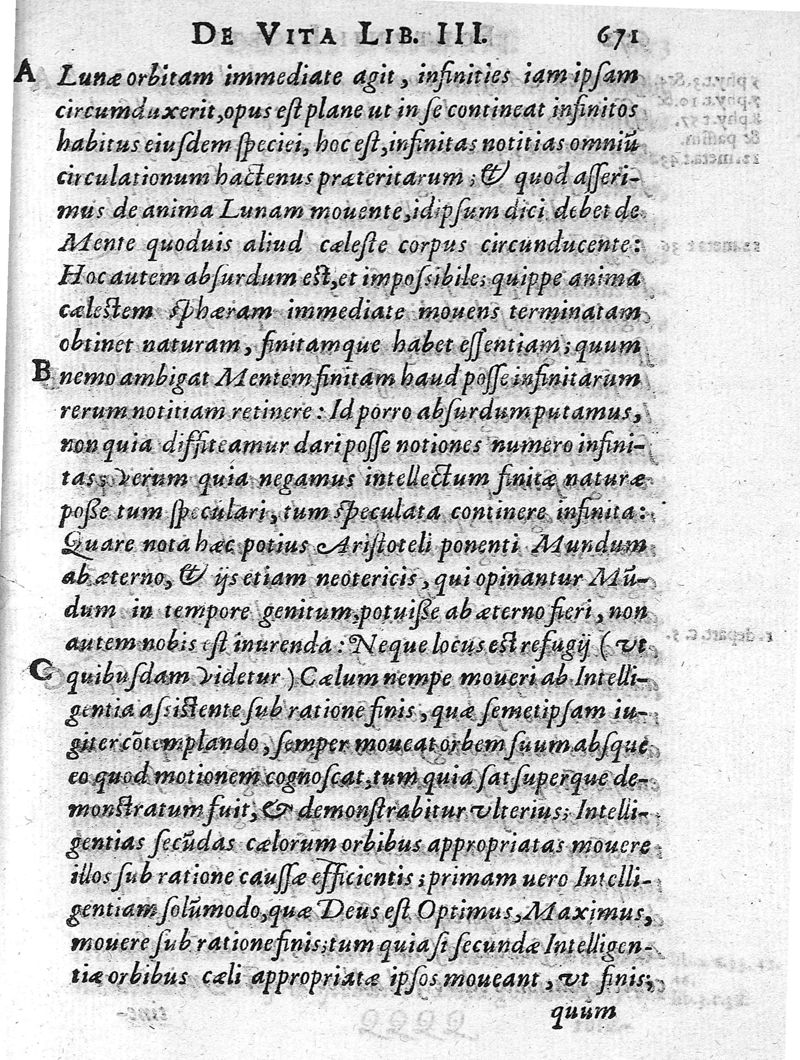 DE VITA LIB. III. 671
A Lunæ orbitam immediate agit, infinities iam ipſam
circumduxerit, opus eſt plane ut in ſe contineat infinitos
habitus eiuſdem ſpeciei, hoc eſt, infinitas notitias omniū
circulationum hactenus præteritarum; & quod aſſeri-
mus de anima Lunam mouente, idipſum dici debet de
Mente quoduis aliud cæleſte corpus circunducente:
Hoc autem abſurdum eſt, et impoſsibile; quippe anima
cæleſtem ſphæram immediate mouens terminatam
obtinet naturam, finitamque habet eſſentiam; quum
B nemo ambigat Mentem finitam haud poſſe infinitarum
rerum notitiam retinere: Id porro abſurdum putamus,
non quia diffiteamur dari poſſe notiones numero infini-
tas; verum quia negamus intellectum finitæ naturæ
poſſe tum ſpeculari, tum ſpeculata continere infinita:
Quare nota hæc potius Ariſtoteli ponenti Mundum
ab æterno, & ijs etiam neotericis, qui opinantur Mū-
dum in tempore genitum, potuiſſe ab æterno fieri, non
autem nobis eſt inurenda: Neque locus eſt refugij (vt
C quibuſdam videtur) Cælum nempe moueri ab Intelli-
gentia aſsiſtente ſub ratione finis, quæ ſemetipſam iu-
giter cōtemplando, ſemper moueat orbem ſuum abſque
eo quod motionem cognoſcat, tum quia ſat ſuperque de-
monſtratum fuit, & demonſtrabitur vlterius; Intelli-
gentias ſecūdas cælorum orbibus appropriatas mouere
illos ſub ratione cauſſæ efficientis; primam uero Intelli-
gentiam ſolūmodo, quæ Deus eſt Optimus, Maximus,
mouere ſub ratione finis; tum quia ſi ſecundæ Intelligen-
tiæ orbibus cæli appropriatæ ipſos moueant, vt finis;
quum